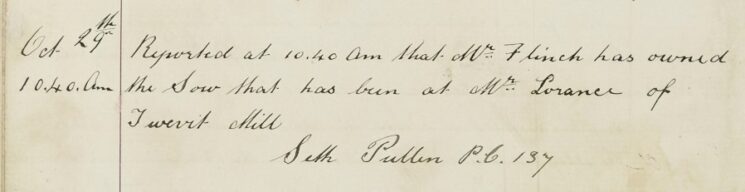 Oct 29th Reported at 10.40 Am that Mr. Flinch has owned
10.40. Am the Sow that has been at Mr. Lorance of
Twevit Mill
Seth Pullen P.C. 137